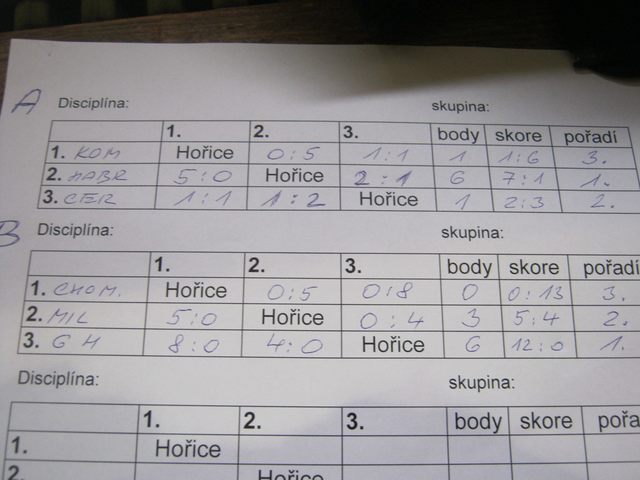 A Disciplína: skupina:
1. 2. 3. body skore pořadí
1. KOM Hořice 0:5 1:1 1 1:6 3.
2. HABR 5:0 Hořice 2:1 6 7:1 1.
3. CER 1:1 1:2 Hořice 1 2:3 2.
B Disciplína: skupina:
1. 2. 3. body skore pořadí
1. CHOM. Hořice 0:5 0:8 0 0:13 3.
2. MIL 5:0 Hořice 0:4 3 5:4 2.
3. GH 8:0 4:0 Hořice 6 12:0 1.
Disciplína: skupina:
1. 2. 3. body skore pořa
1. Hořice
2. Hořice